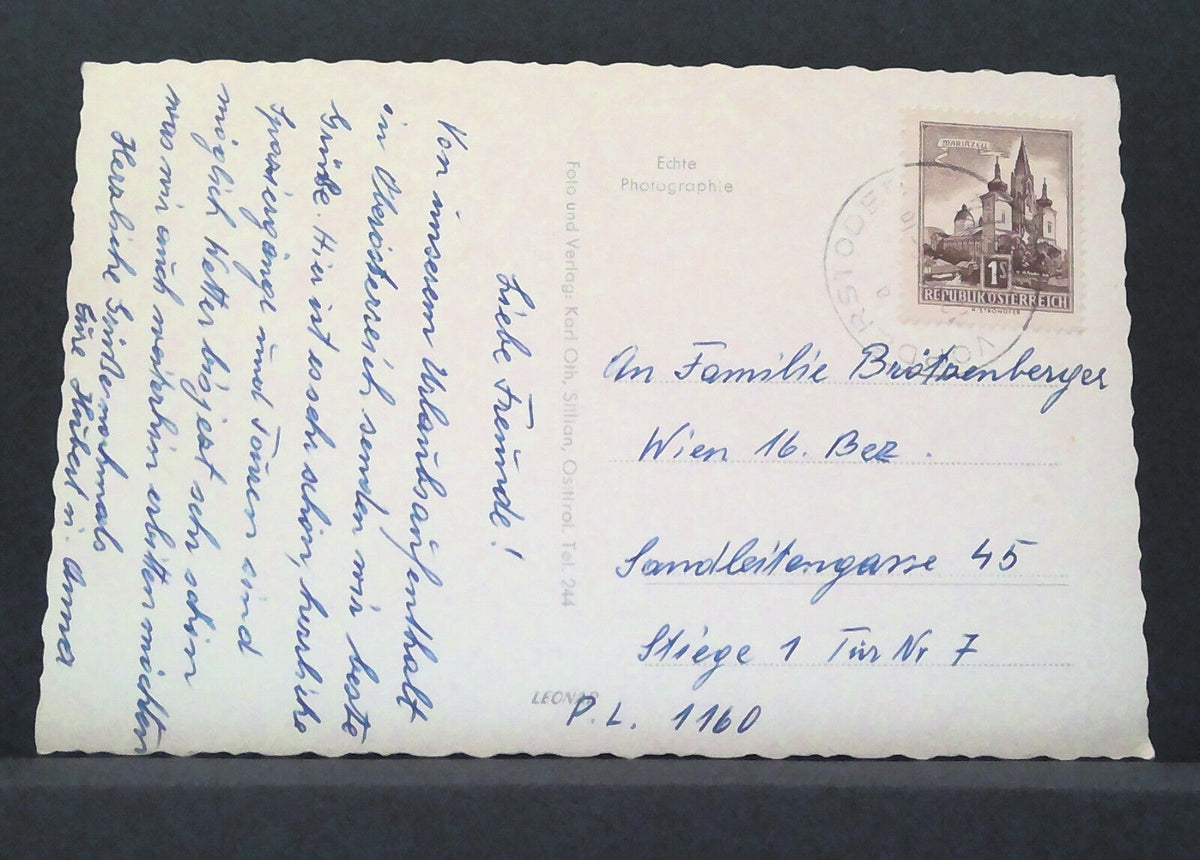 Liebe Freunde!
Von unserem Urlaubsaufenthalt
in Oberösterreich senden wir beste
Grüße. Hier ist es sehr schön, herrliche
Spaziergänge und Touren sind
möglich Wetter bisjetzt sehr schön
was wir auch weiterhin erbitten möchten
Herzliche Grüße nochmals
Eure Hubert u. Anna
Echte
Photographie
Foto und Verlag: Karl Oth, Sillian, Osttirol. Tel. 244
LEONAR
MARIAZELL
1S
REPUBLIK ÖSTERREICH
VORDERSTODER
An Familie Brötzenberger
Wien 16. Bez.
Sandleitengasse 45
Stiege 1 Tür Nr 7
P.L. 1160